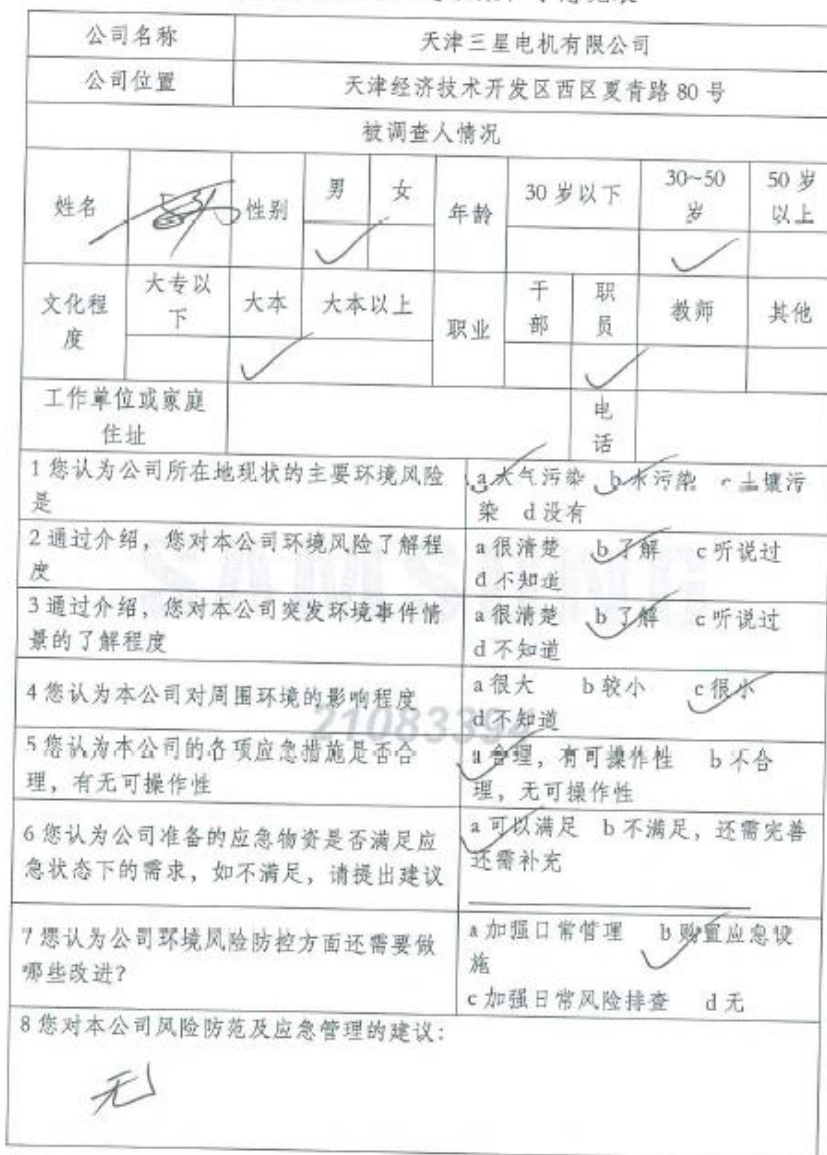 公司名称 天津三星电机有限公司
公司位置 天津经济技术开发区西区夏青路 80 号
被调查人情况
姓名 性别 男 女 年龄 30 岁以下 30~50 岁 50 岁以上
✓ ✓
文化程度 大专以下 大本 大本以上 职业 干部 职员 教师 其他
✓ ✓
工作单位或家庭住址 电话
1 您认为公司所在地现状的主要环境风险
是
a 大气污染 b 水污染 c 土壤污
染 d 没有
2 通过介绍，您对本公司环境风险了解程
度
a 很清楚 b 了解 c 听说过
d 不知道
3 通过介绍，您对本公司突发环境事件情
景的了解程度
a 很清楚 b 了解 c 听说过
d 不知道
4 您认为本公司对周围环境的影响程度
a 很大 b 较小 c 很小
d 不知道
5 您认为本公司的各项应急措施是否合
理，有无可操作性
a 合理，有可操作性 b 不合
理，无可操作性
6 您认为公司准备的应急物资是否满足应
急状态下的需求，如不满足，请提出建议
a 可以满足 b 不满足，还需完善
还需补充
7 您认为公司环境风险防控方面还需要做
哪些改进?
a 加强日常管理 b 购置应急设
施
c 加强日常风险排查 d 无
8 您对本公司风险防范及应急管理的建议：
无
SAMSUNG
21083394